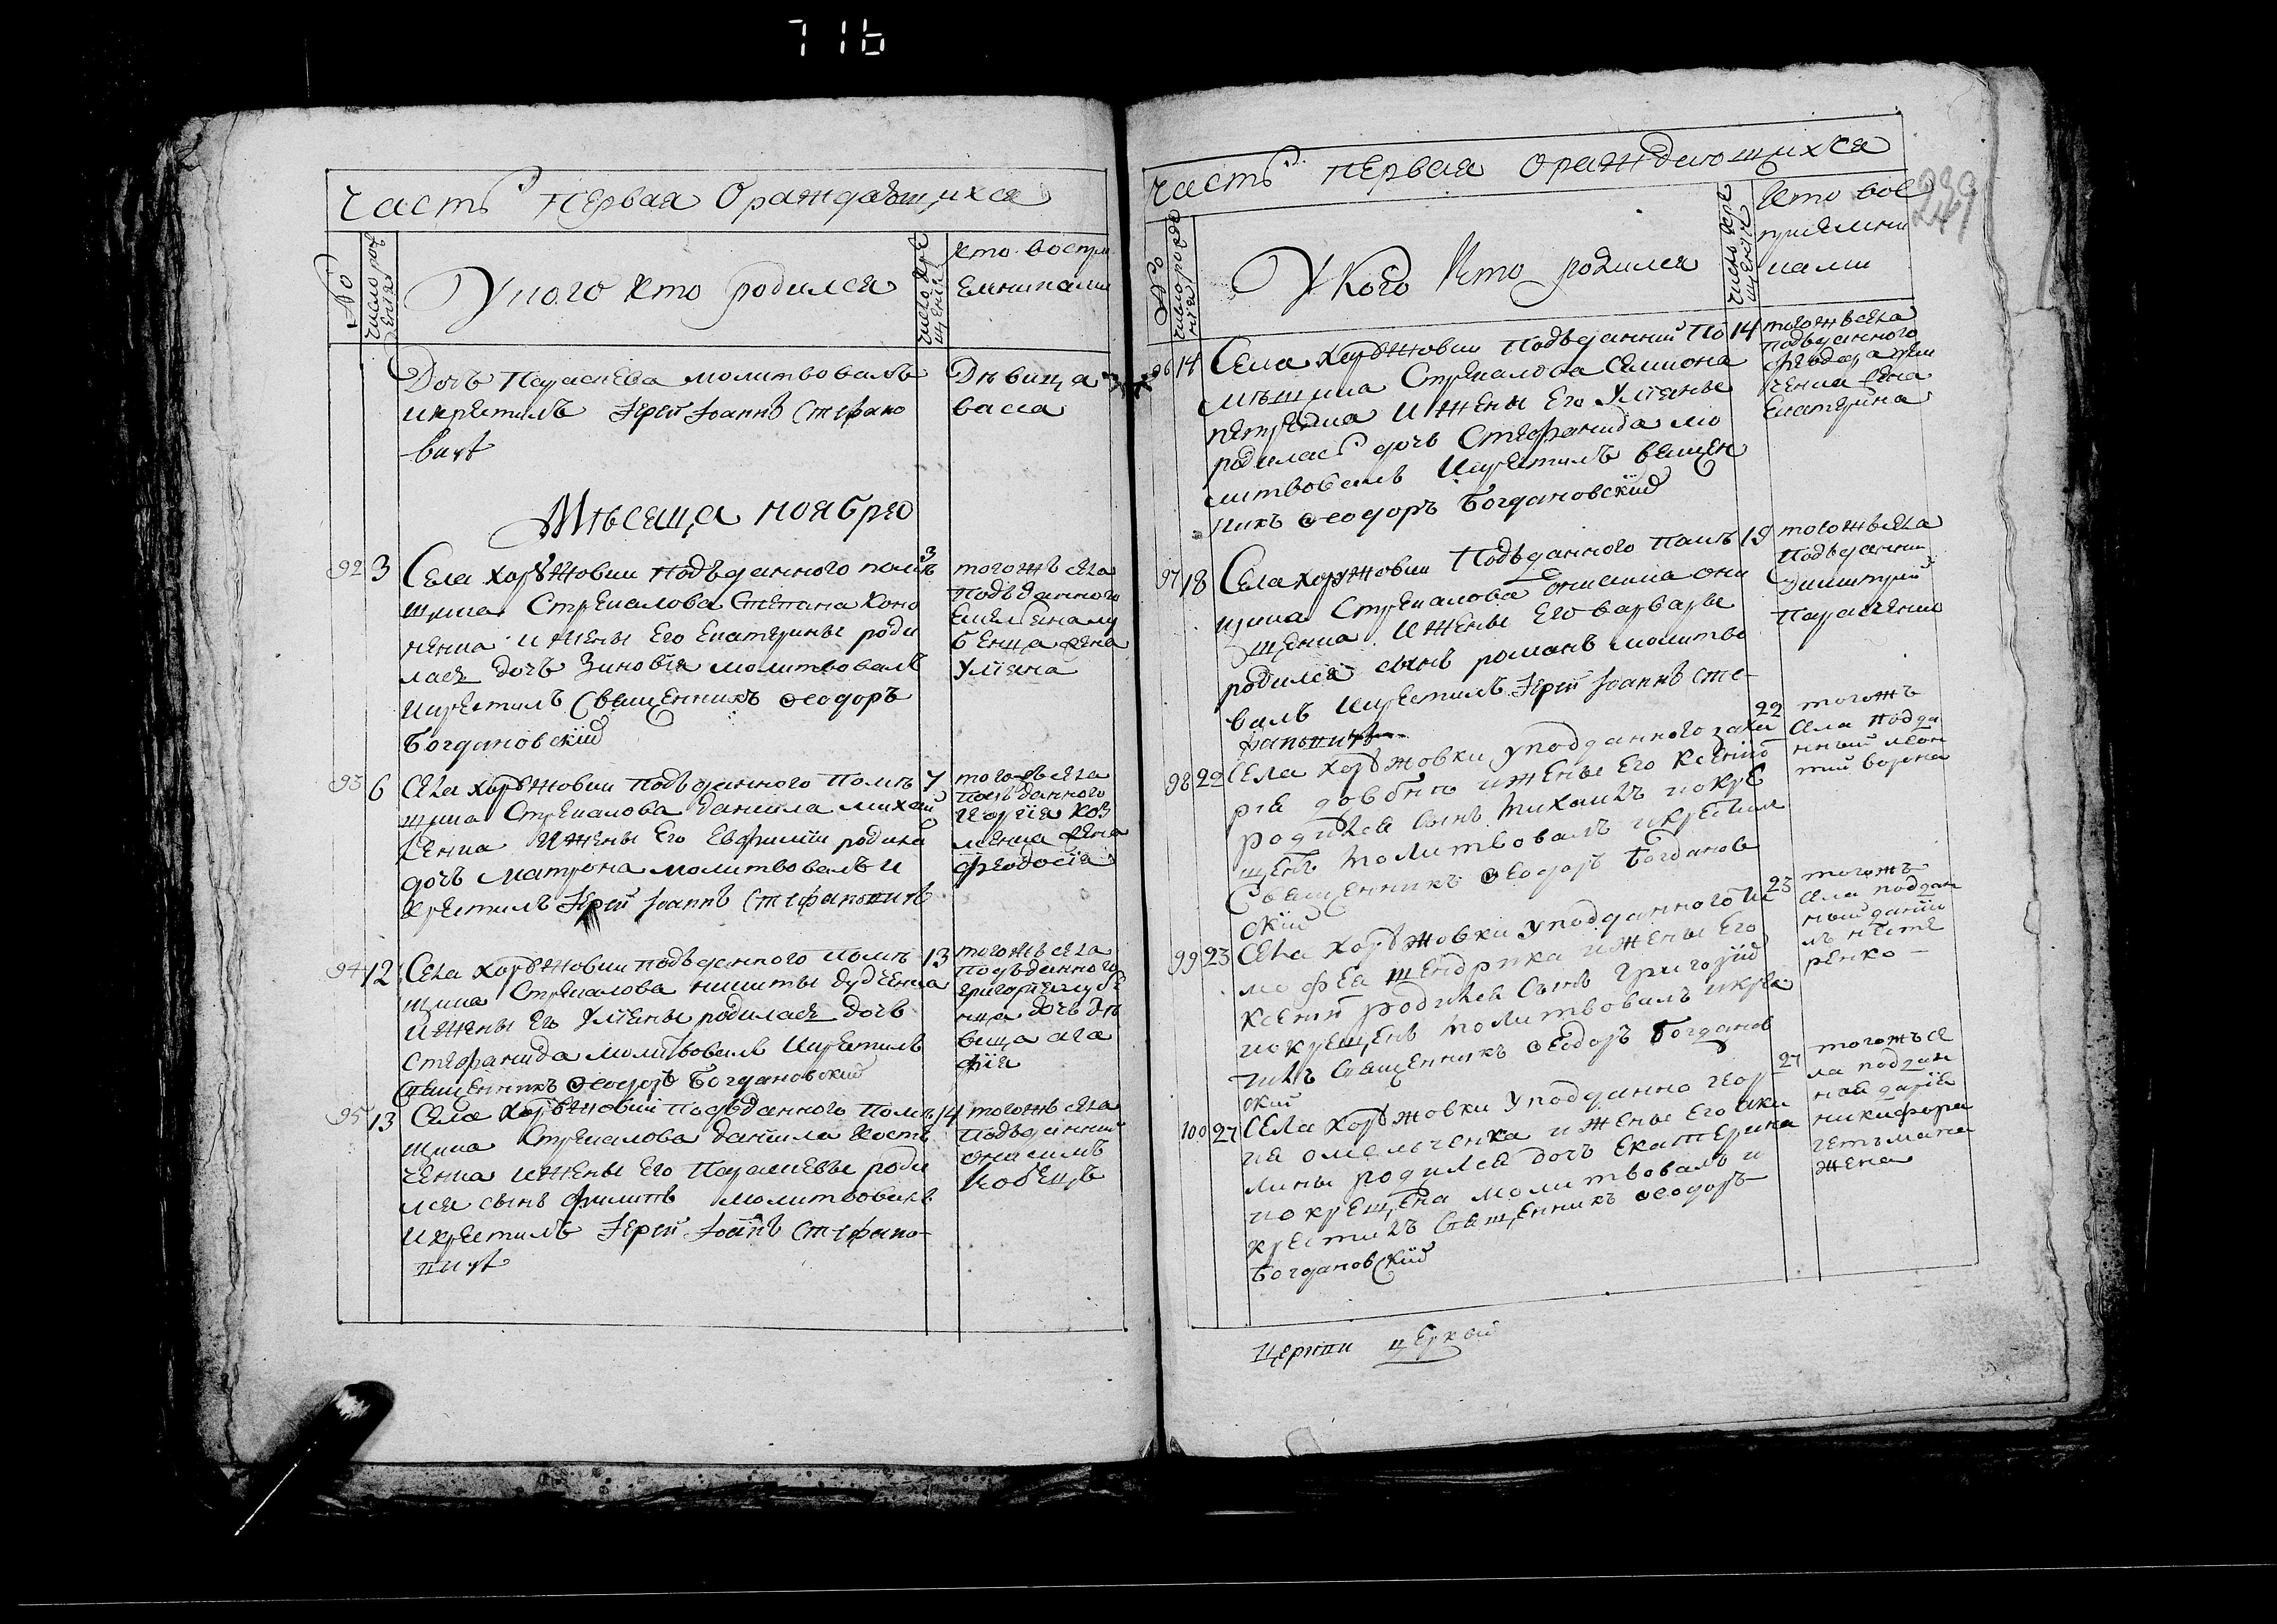 716
часть первая ораждающихся
№
число рож
Укого кто родился
число кре
щенія
кто воспри
емниками
Дочь Параскева молитвовалъ
икрестилъ Іерей Іоаннъ Стефано
вичъ
Дѣвица
васса
Мѣсяца ноября
92 3 Села хоружовки подъданного помѣ 3
щика Стрекалова Степана Коно
ненка ижены Его Екатерины роди
лася дочь Зиновія молитвовалъ
икрестилъ Священникъ Ѳеодоръ
Богдановскій
тогожъ села
подъданного
жена
Уліяна
93 6 Села хоружовки подъданного помѣ 7
щика Стрекалова Даніила
ижены Его Евфиміи родила
дочь матрона молитвовалъ и
крестилъ Іерей Іоаннъ Стефановичъ
тогожъ села
подъданного
георгія коз
ленка жена
феодосія
94 12 Села хоружовки подъданного помѣ 13
щика Стрекалова никиты дудченка
ижены Его Уліяны родилася дочь
стефанида молитвовалъ икрестилъ
священникъ Ѳеодоръ Богдановскій
тогожъ села
подъданного
григорія
дочь дѣ
вица ага
фія
95 13 Села хоружовки подъданного помѣ 14
щика Стрекалова даніила Костю
ченка ижены Его Параскевы роди
лся сынъ филипъ молитвовалъ
икрестилъ Іерей Іоаннъ Стефано
вичъ
тогожъ села
подъданний
онисимъ
кобецъ
часть первая ораждающихся
239
№
число рожде
нія
Укого кто родился
число кре
щенія
кто вос
приемни
ками
96 14 Села хоружовки подъданний по 14
мѣщика Стрекалова Симиона
петренка ижены Его Уліяны
родилась дочь Стефанида мо
литвовалъ икрестилъ священ
никъ Ѳеодоръ Богдановскій
тогожъ села
подъданного
феодора
жена
Екатерина
97 18 Села хоружовки подъданного помѣ 19
щика Стрекалова
ижены Его варвары
родился сынъ романъ молитво
валъ икрестилъ Іерей Іоаннъ Сте
фановичъ
тогожъ села
подъданний
димитрий
98 22 Села хоружовки уподданного заха 22
рія довбнѣ ижены Его ксеніи
родился сынъ михаилъ покре
щенъ молитвовалъ икрестилъ
Священникъ Ѳеодоръ Богданов
скій
тогожъ
села подда
нный леон
тий ворона
99 23 Села хоружовки уподданного ти 23
мофея щендрика ижены Его
ксеніи родился сынъ григорій
покрещенъ молитвовалъ икрес
тилъ Священникъ Ѳеодоръ Богданов
скій
тогожъ
села поддан
ный даніи
лъ несте
ренко
100 27 Села хоружовки уподданно геор 27
гія омельченка ижены Его аки
лины родился дочь Екатерина
покрещена молитвовалъ и
крестилъ Священникъ Ѳеодоръ
Богдановскій
тогожъ се
ла поддан
ной
никифора
гетьмана
жена